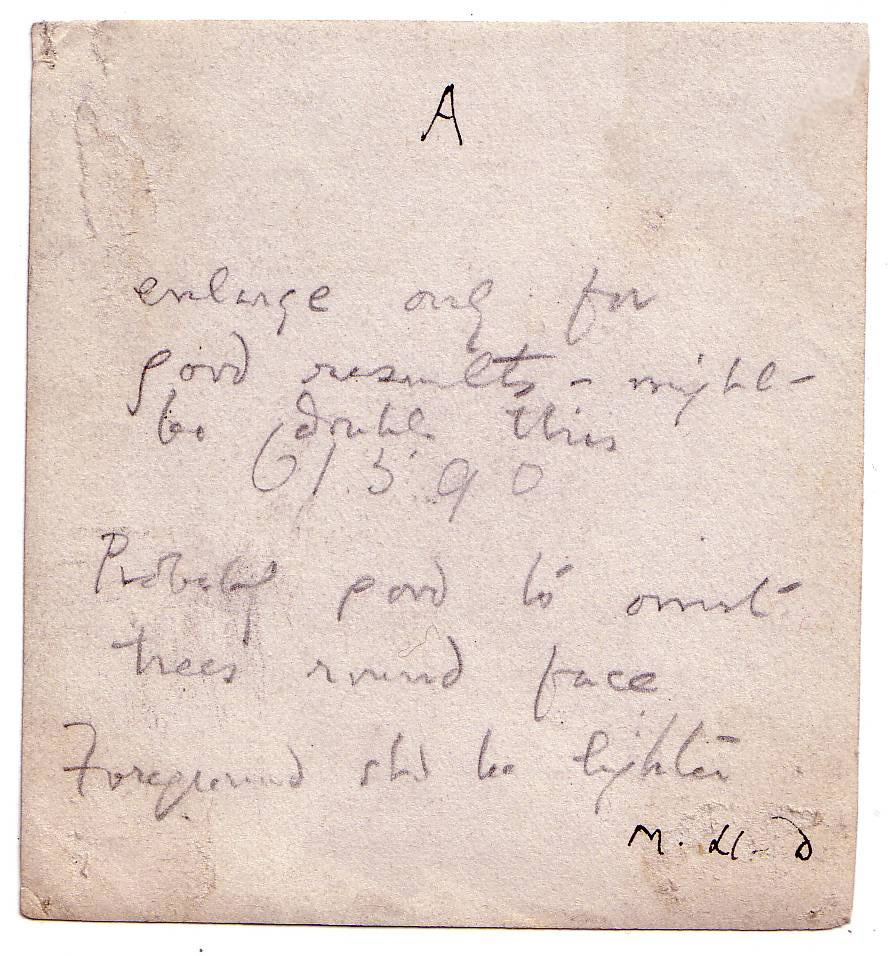 A
enlarge only for
good results - might
be double this
61590
Probably good to omit
trees round face
Foreground shd be lighter
M. Ll. D